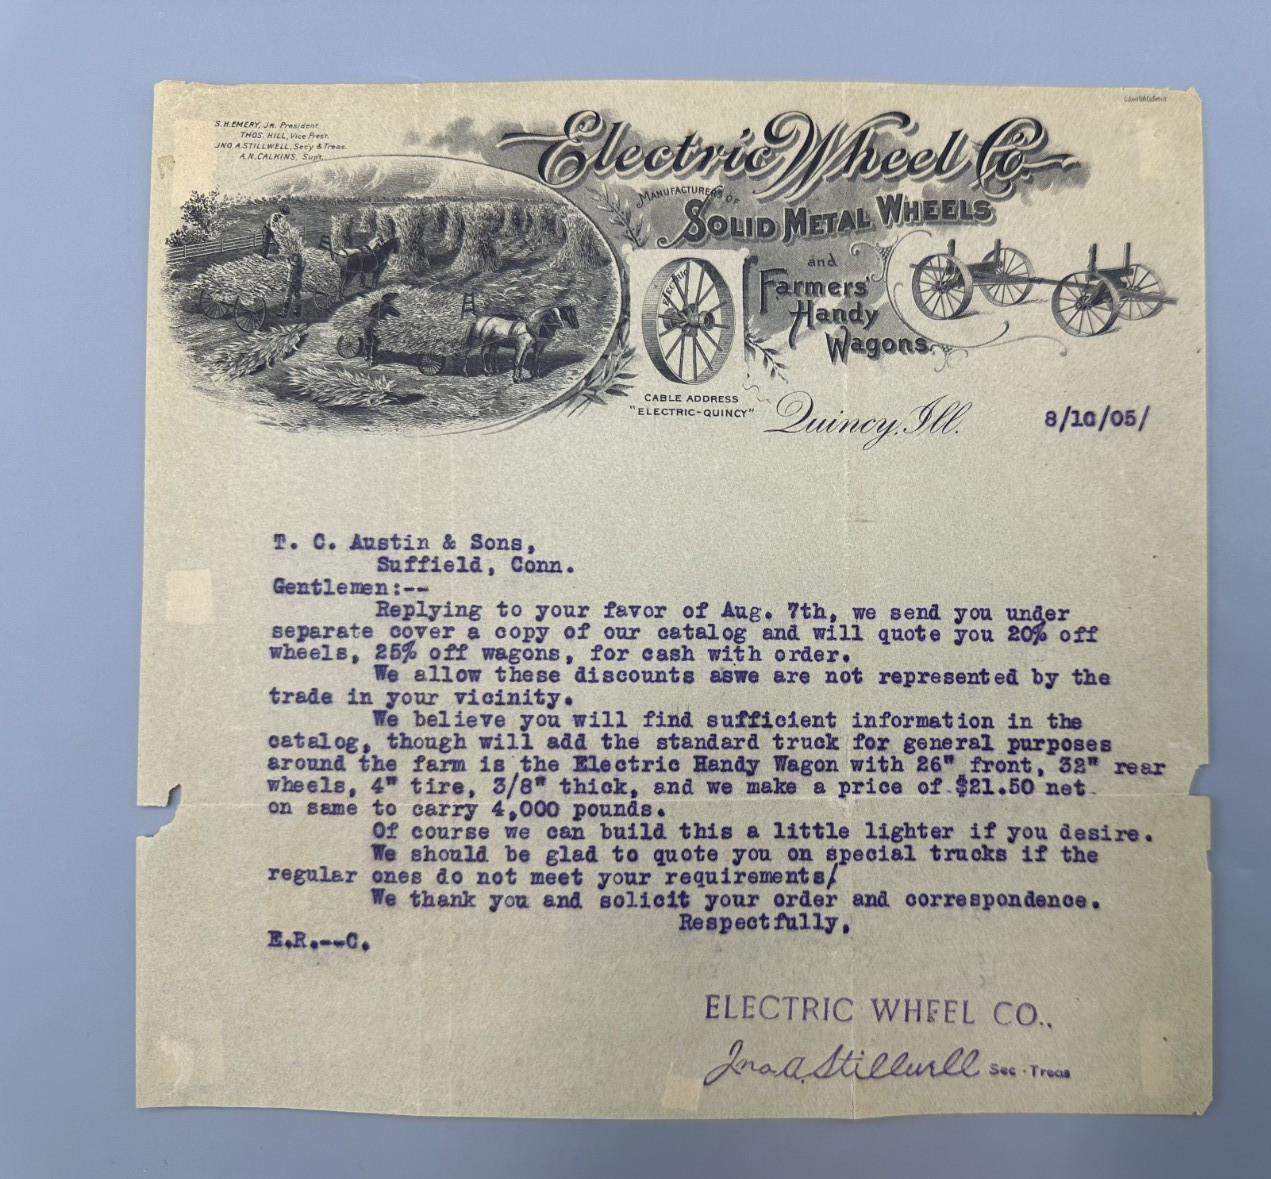 S.H.EMERY, JR. President.
THOS. HILL, Vice Prest.
JNO. A. STILLWELL, Sec'y & Treas.
A.N.CALKINS, Supt.
Electric Wheel Co.
MANUFACTURERS OF
SOLID METAL WHEELS
and
Farmers'
Handy
Wagons.
ELECTRIC
CABLE ADDRESS
"ELECTRIC-QUINCY"
Quincy, Ill.
8/10/05/
T. C. Austin & Sons,
Suffield, Conn.
Gentlemen:--
Replying to your favor of Aug. 7th, we send you under
separate cover a copy of our catalog and will quote you 20% off
wheels, 25% off wagons, for cash with order.
We allow these discounts aswe are not represented by the
trade in your vicinity.
We believe you will find sufficient information in the
catalog, though will add the standard truck for general purposes
around the farm is the Electric Handy Wagon with 26" front, 32" rear
wheels, 4" tire, 3/8" thick, and we make a price of $21.50 net
on same to carry 4,000 pounds.
Of course we can build this a little lighter if you desire.
We should be glad to quote you on special trucks if the
regular ones do not meet your requirements/
We thank you and solicit your order and correspondence.
Respectfully,
E.R.--C.
ELECTRIC WHEEL CO.,
Jno. A. Stillwell Sec-Treas